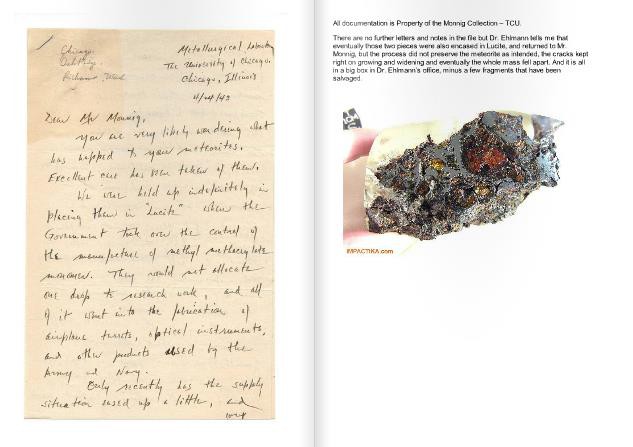 Chicago
Oakridge
Richard Wood
Metallurgical Laboratory
The University of Chicago,
Chicago, Illinois
4/24/43
Dear Mr Monnig,
You are very likely wondering what
has happed to your meteorites.
Excellent care has been taken of them.
We were held up indefinitely in
placing them in "Lucite" when the
Government took over the control of
the manufacture of methyl methacrylate
monomer. They would not allocate
one drop to research work, and all
of it went into the fabrication of
airplane turrets, optical instruments,
and other products used by the
Army and Navy.
Only recently has the supply
situation eased up a little, and
All documentation is Property of the Monnig Collection – TCU.
There are no further letters and notes in the file but Dr. Ehlmann tells me that
eventually those two pieces were also encased in Lucite, and returned to Mr.
Monnig, but the process did not preserve the meteorite as intended, the cracks kept
right on growing and widening and eventually the whole mass fell apart. And it is all
in a big box in Dr. Ehlmann's office, minus a few fragments that have been
salvaged.
IMPACTIKA.com